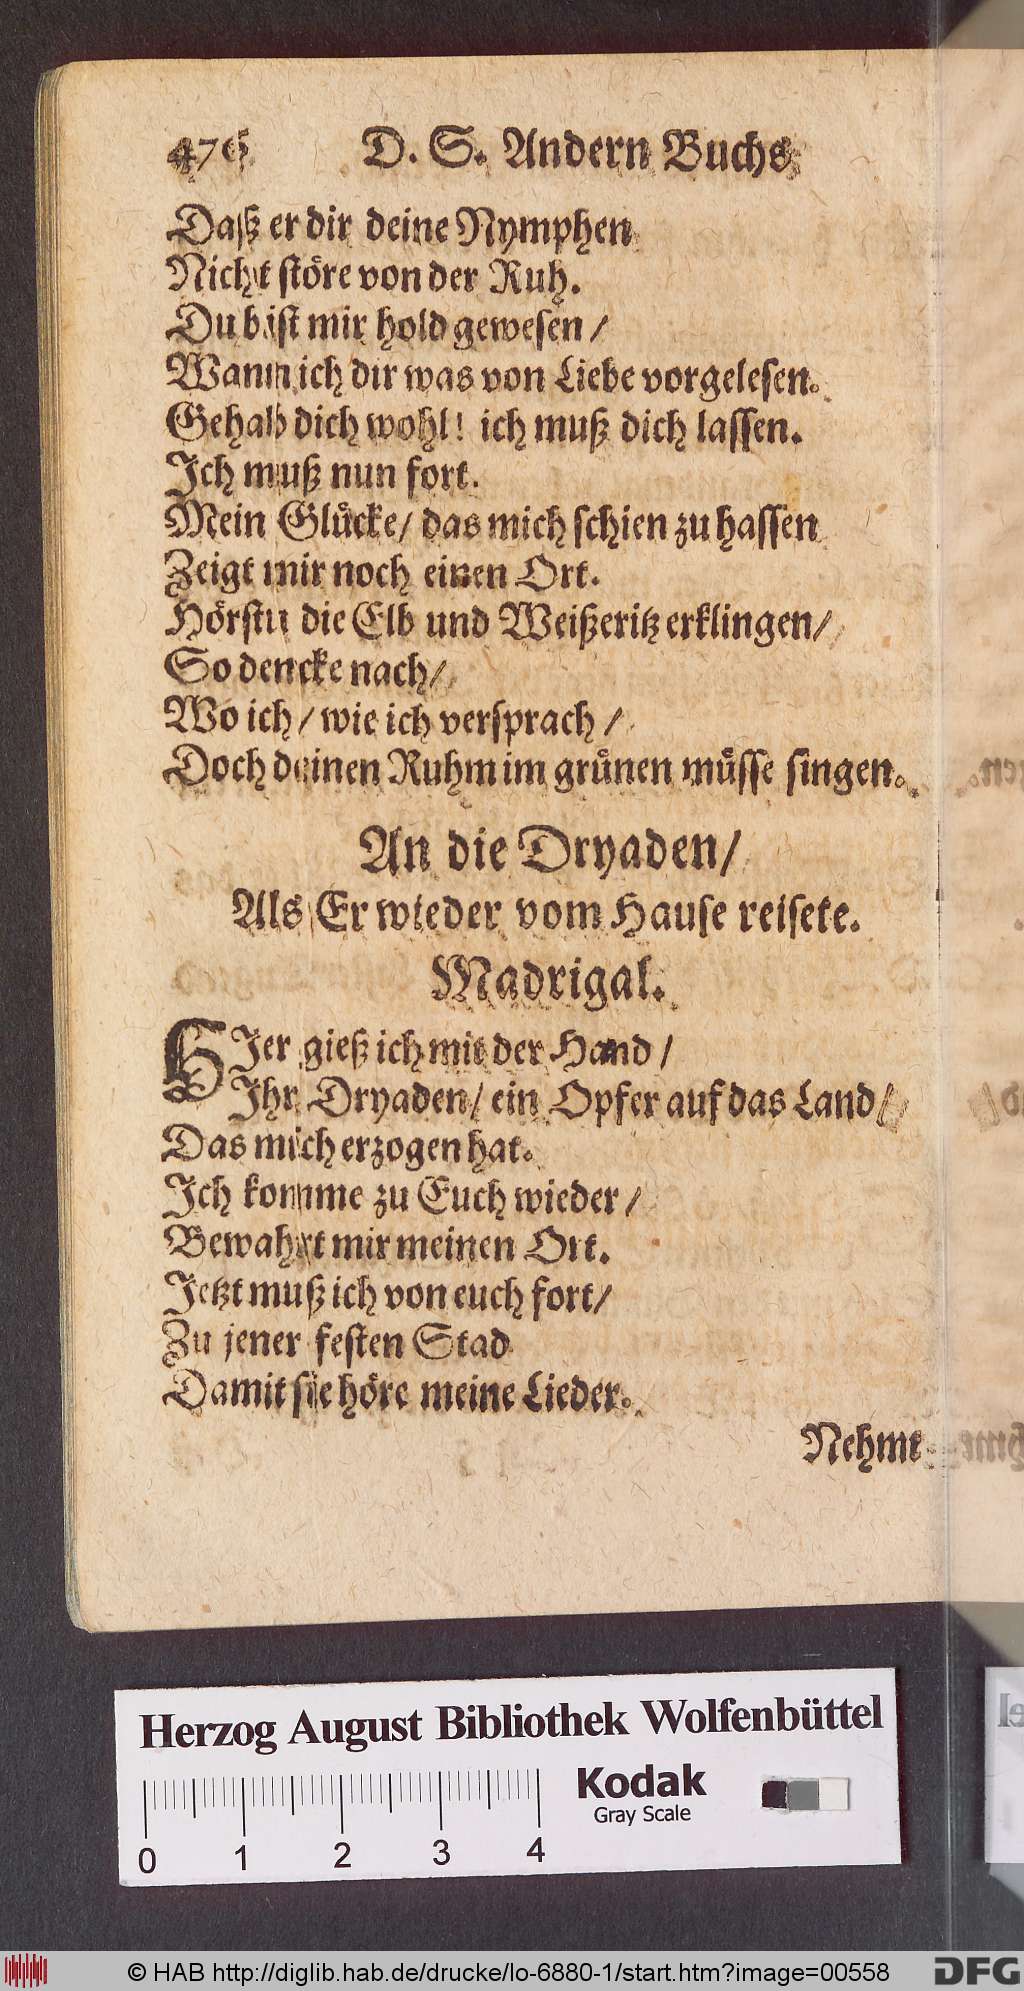 476 D. S. Andern Buchs
Daß er dir deine Nymphen
Nicht störe von der Ruh.
Du bist mir hold gewesen /
Wann ich dir was von Liebe vorgelesen.
Gehab dich wohl! ich muß dich lassen.
Ich muß nun fort.
Mein Glücke / das mich schien zu hassen
Zeigt mir noch einen Ort.
Hörstu die Elb und Weißeritz erklingen /
So dencke nach /
Wo ich / wie ich versprach /
Doch deinen Ruhm im grünen müsse singen.
An die Dryaden /
Als Er wieder vom Hause reisete.
Madrigal.
HIer gieß ich mit der Hand /
Ihr Dryaden / ein Opfer auf das Land /
Das mich erzogen hat.
Ich komme zu Euch wieder /
Bewahrt mir meinen Ort.
Jetzt muß ich von euch fort /
Zu jener festen Stad
Damit sie höre meine Lieder.
Nehmt
Herzog August Bibliothek Wolfenbüttel
Kodak
Gray Scale
0 1 2 3 4
© HAB http://diglib.hab.de/drucke/lo-6880-1/start.htm?image=00558
DFG